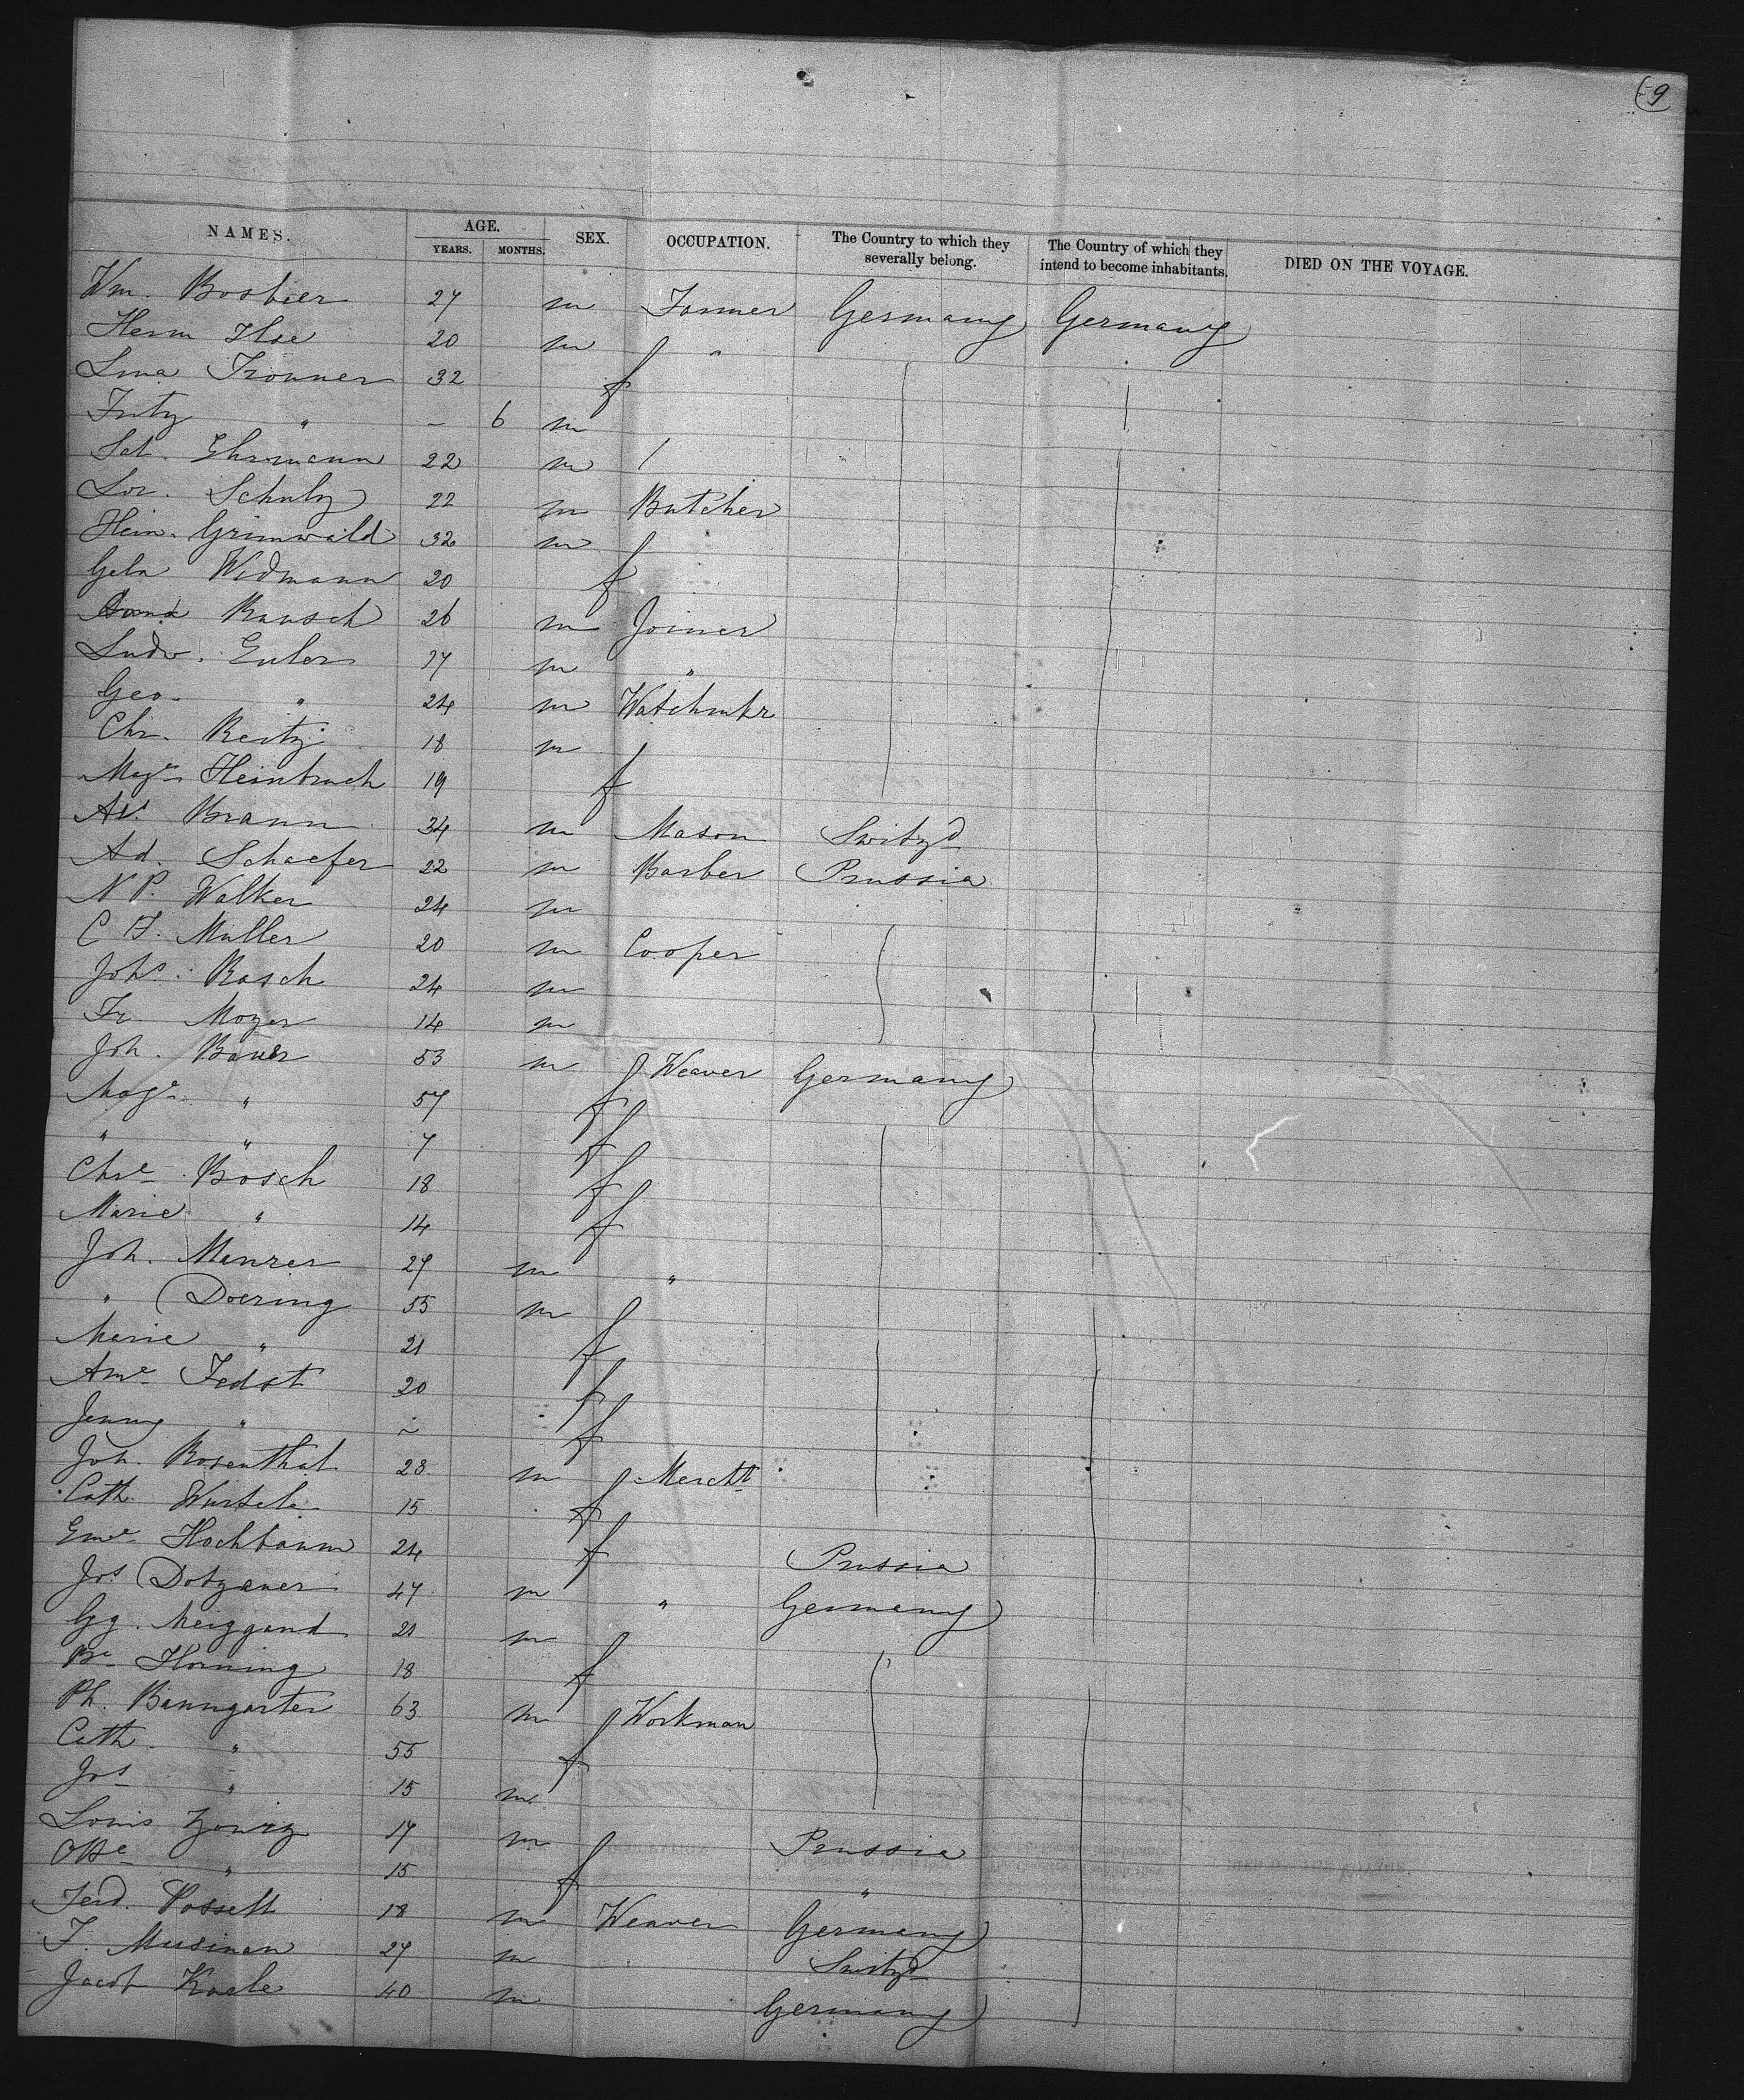 9
NAMES. AGE. YEARS. MONTHS. SEX. OCCUPATION. The Country to which they severally belong. The Country of which they intend to become inhabitants. DIED ON THE VOYAGE.
Wm. Bosbier 27 m Farmer Germany Germany
Herm Ilse 20 m "
Lina Tronner 32 f
Fritz " - 6 m
Sal. Ehrmann 22 m /
Lor. Schulz 22 m Butcher
Hein. Grimwald 32 m
Gela Widmann 20 f
Rausch 26 m Joiner
Ludw. Euler 17 m "
Geo. " 24 m Watchmkr
Chr. Reitz 18 m
Mage Heinbuch 19 f
Braun 34 m Mason Switzd
Ad. Schaefer 22 m Barber Prussia
N P. Walker 24 m
C F. Muller 20 m Cooper
Johs. Rasch 24 m
Fr. Moyer 14 m
Joh. Bauer 53 m Weaver Germany
Mage " 57 f
" " 7 f
Chre Bosch 18 f
Marie " 14 f
Joh. Manrer 27 m "
" Doering 55 m
Marie " 21 f
Ame Fedst 20 f
Jenny " ~ f
Joh. Rosenthal 28 m Mercht
Cath. Wursele 15 f
Eme Hochbaum 24 f Prussia
Jos Dotzauer 47 m " Germany
Gg. Meiggand 21 m
Be Horning 18 f
Ph. Baumgarten 63 m Workman
Cath. " 55 f
Jos " 15 m
Louis 17 m Prussia
" 15 f "
Ferd. Posselt 18 m Weaver Germany
F. Musinan 27 m Switzd
Jacob Kaele 40 m Germany